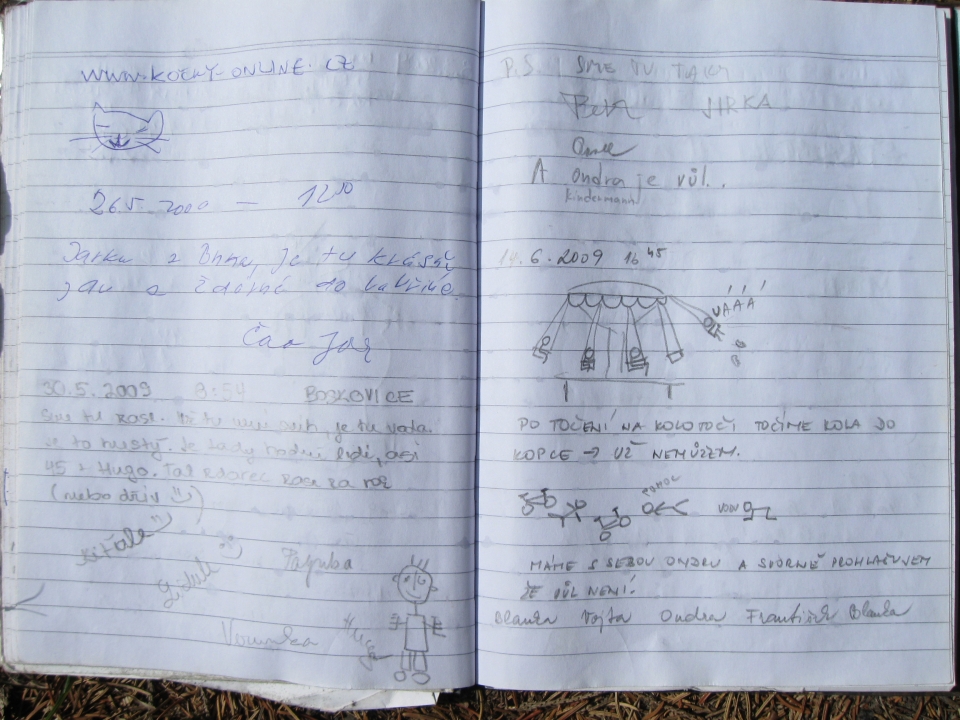 WWW.KOCKY-ONLINE.CZ
26.5. 2009 — 12 00
Jarka z Brna, je tu krásně
jdu a žďárné do
Čao Jar
30.5.2009 8:54 BOSKOVICE
sme tu zase. je tu voda.
je to hustý. Je tady hodně lidí, asi
45 + Hugo. Tak zdarec zase za rok
(nebo dřív)
Papuba
Verunka
Hugo
P.S. SME TU TAKY
JIRKA
A Ondra je vůl..
Kindermann
14.6.2009 16 45
UÁÁÁ
PO TOČENÍ NA KOLOTOČI TOČÍME KOLA DO
KOPCE → UŽ NEMŮŽEM.
POMOC
VODU
MÁME S SEBOU ONDRU A SBORNĚ PROHLAŠUJEM
ŽE VŮL NENÍ!
Blanka Vojta Ondra František Blanka